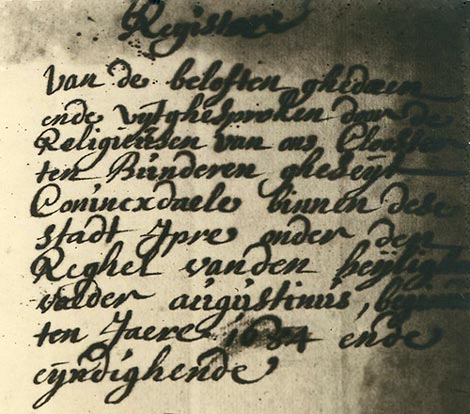 Registere
van de beloften ghedaen
ende vÿtghesproken door de
Religieusen van ons Clooster
ten Bunderen gheseÿt
Conincxdaele binnen dese
stadt Jpre onder den
Reghel vanden heÿligh
vader augustinus,
ten Jaere 1684 ende
eÿndighende